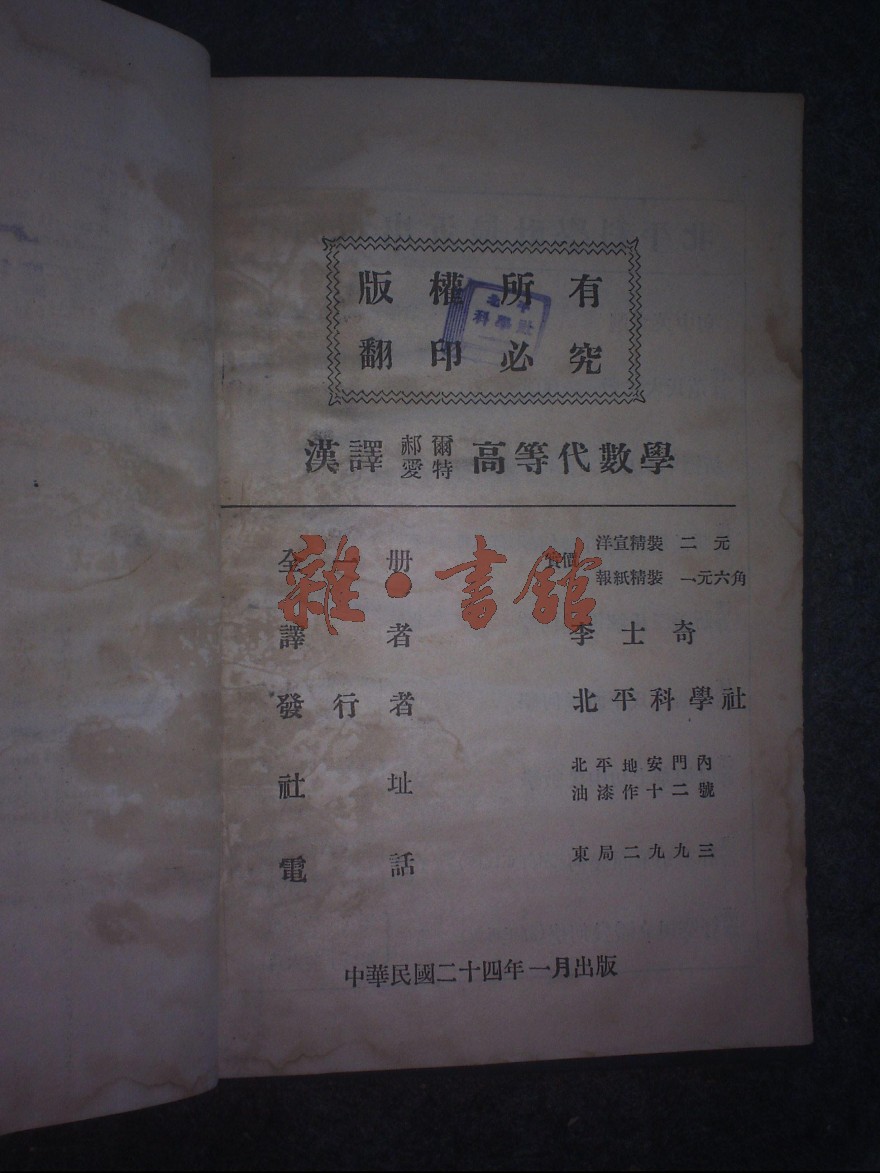 版權所有
北平
科學社
翻印必究
漢譯 郝爾愛特 高等代數學
全一册 實價 洋宣精裝 二元
報紙精裝 一元六角
雜·書館
譯者 李士奇
發行者 北平科學社
社址 北平地安門內
油漆作十二號
電話 東局二九九三
中華民國二十四年一月出版